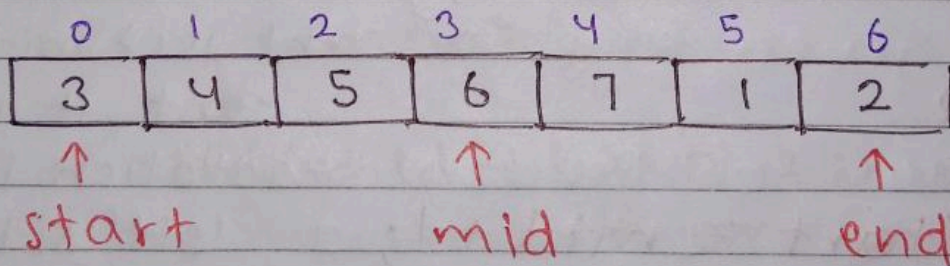 0 1 2 3 4 5 6
3 4 5 6 7 1 2
start mid end